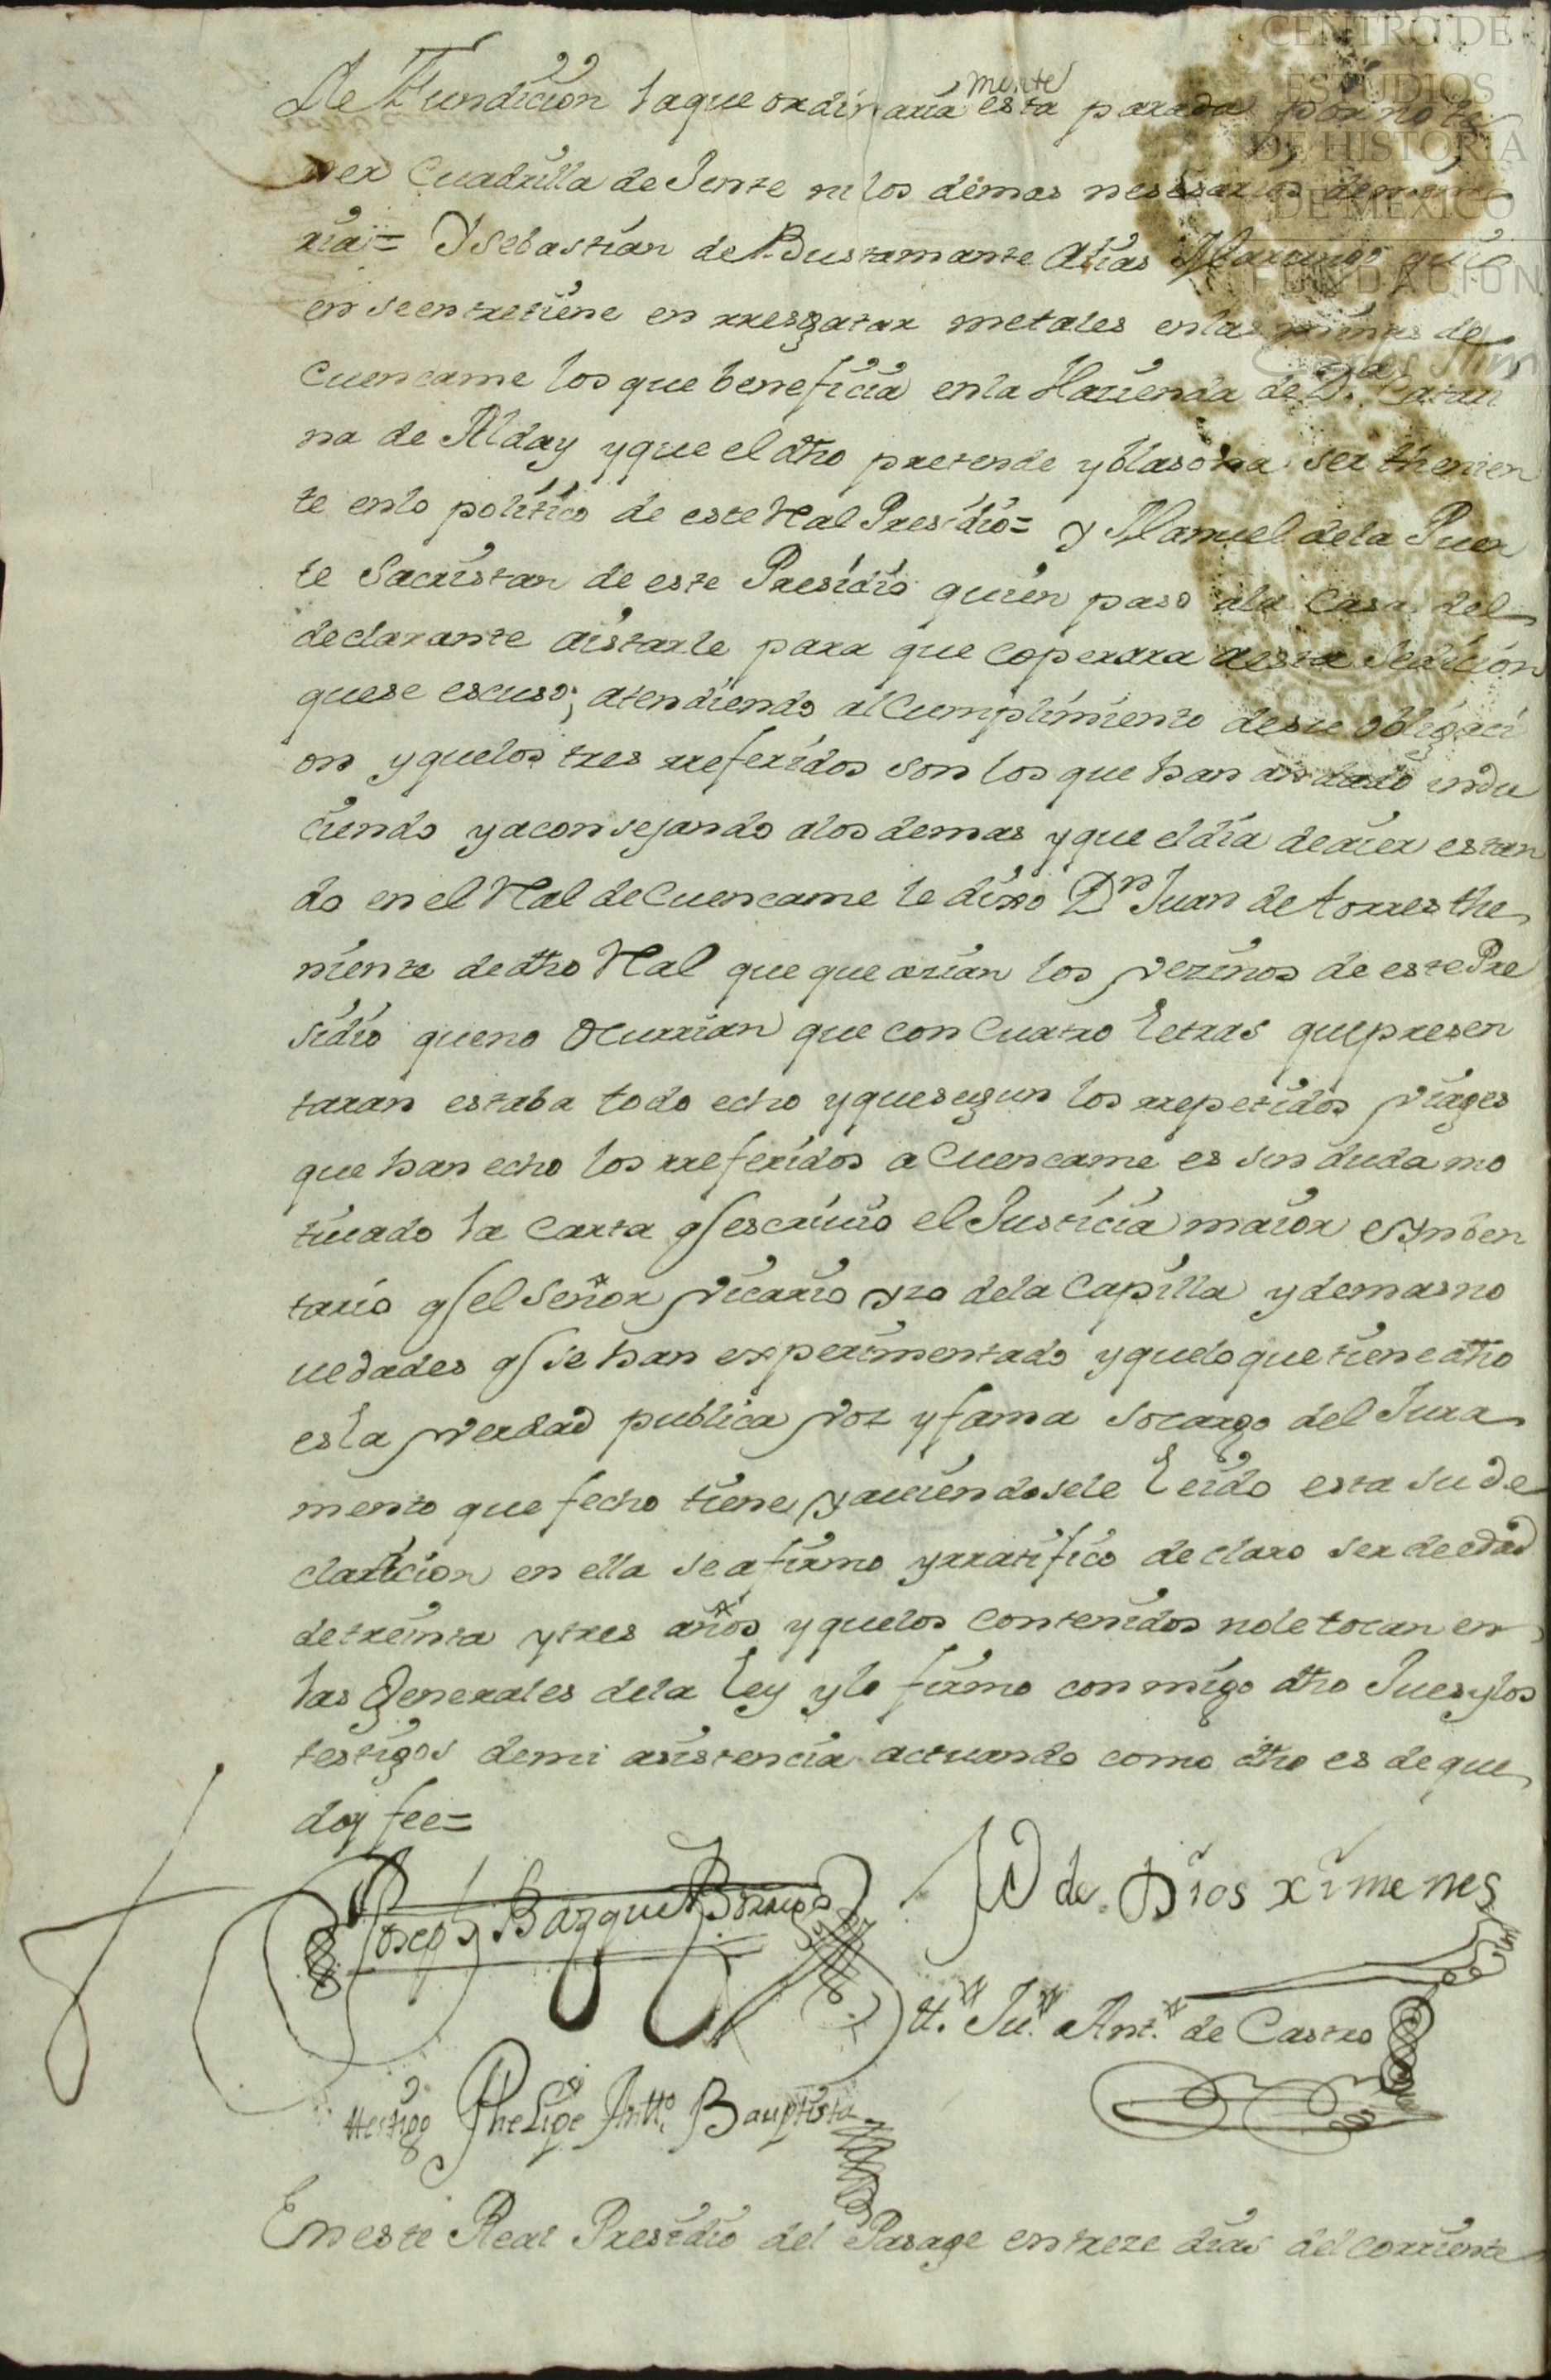 CENTRO DE
ESTUDIOS
DE HISTORIA
DE MEXICO
FUNDACION
Carlos Slim
De Fundicion la que ordinaria mente esta parada por no te
ner Cuadrilla de Jente ni los demas nesesarios de mine
ria= Y Sebastian de Bustamante Alias qui
en se entretiene en rresgatar metales en las minas de
Cuencame los que beneficia en la Hazienda de Da. Catari
na de Alday y que el dho pretende y blasona ser thenien
te en lo politico de este Ral Presidio= y Manuel de la Puer
te Sacristan de este Presidio quien paso a la Casa del
declarante aistarle para que coperara a esta Sedicion
que se escuso; atendiendo al Cumplimiento de su obligaci
on y que los tres rreferidos son los que han andado indu
ciendo y aconsejando a los demas y que el dia de aier estan
do en el Ral de Cuencame le dixo Dn Juan de torres the
niente de dho Ral que que arian los vezinos de este Pre
sidio que no Ocurrian que con Cuatro letras que presen
taran estaba todo echo y que segun los rrepetidos viages
que han echo los rreferidos a Cuencame es sin duda mo
tiuado la Carta q escriuio el Justicia maior e Ynben
tario q el Señor vicario yzo de la Capilla y demas no
uedades q se han experimentado y que lo que tiene dho
es la verdad publica voz y fama so cargo del Jura
mento que fecho tiene y auiendosele leido esta su de
claracion en ella se afirmo y rratifico declaro ser de edad
de treinta y tres años y que los Contenidos no le tocan en
las Generales de la ley y lo firmo con migo dho Jues y los
testigos de mi asistencia actuando como dho es de que
doy fee=
Joseph Bazquez Borrego
Ju de Dios ximenes
tto. Jun. Anto. de Castro
ttestigo Phelipe Antto. Bauptista
En este Real Presidio del Pasage en treze dias del corriente